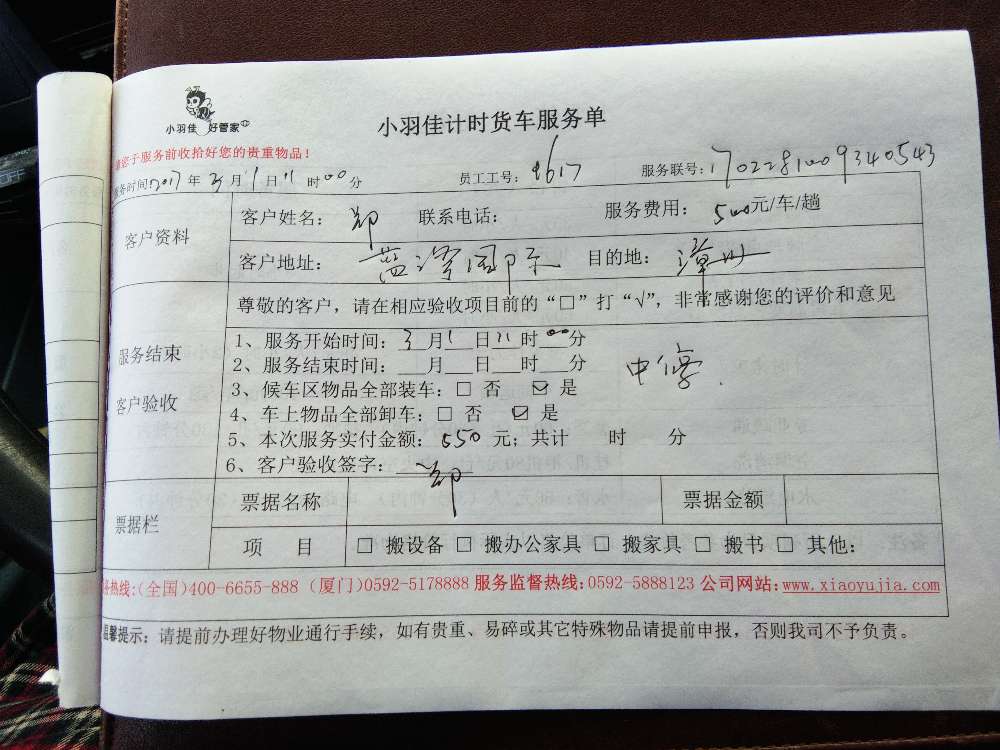 小羽佳 好管家
小羽佳计时货车服务单
请您于服务前收拾好您的贵重物品！
服务时间:2017年3月1日11时00分 员工工号: 服务联号:1702281009340543
客户资料
客户姓名：郑 联系电话： 服务费用：500元/车/趟
客户地址：蓝 目的地：漳州
服务结束
客户验收
尊敬的客户，请在相应验收项目前的“□”打“√”，非常感谢您的评价和意见
1、服务开始时间：3月1日11时00分
2、服务结束时间：___月___日___时___分
3、候车区物品全部装车：□ 否 ☑ 是
4、车上物品全部卸车：□ 否 ☑ 是
5、本次服务实付金额：550元；共计 时 分
6、客户验收签字：郑
票据栏
票据名称 票据金额
项 目 □ 搬设备 □ 搬办公家具 □ 搬家具 □ 搬书 □ 其他：
务热线:(全国)400-6655-888 (厦门)0592-5178888 服务监督热线:0592-5888123 公司网站:www.xiaoyujia.com
温馨提示：请提前办理好物业通行手续，如有贵重、易碎或其它特殊物品请提前申报，否则我司不予负责。